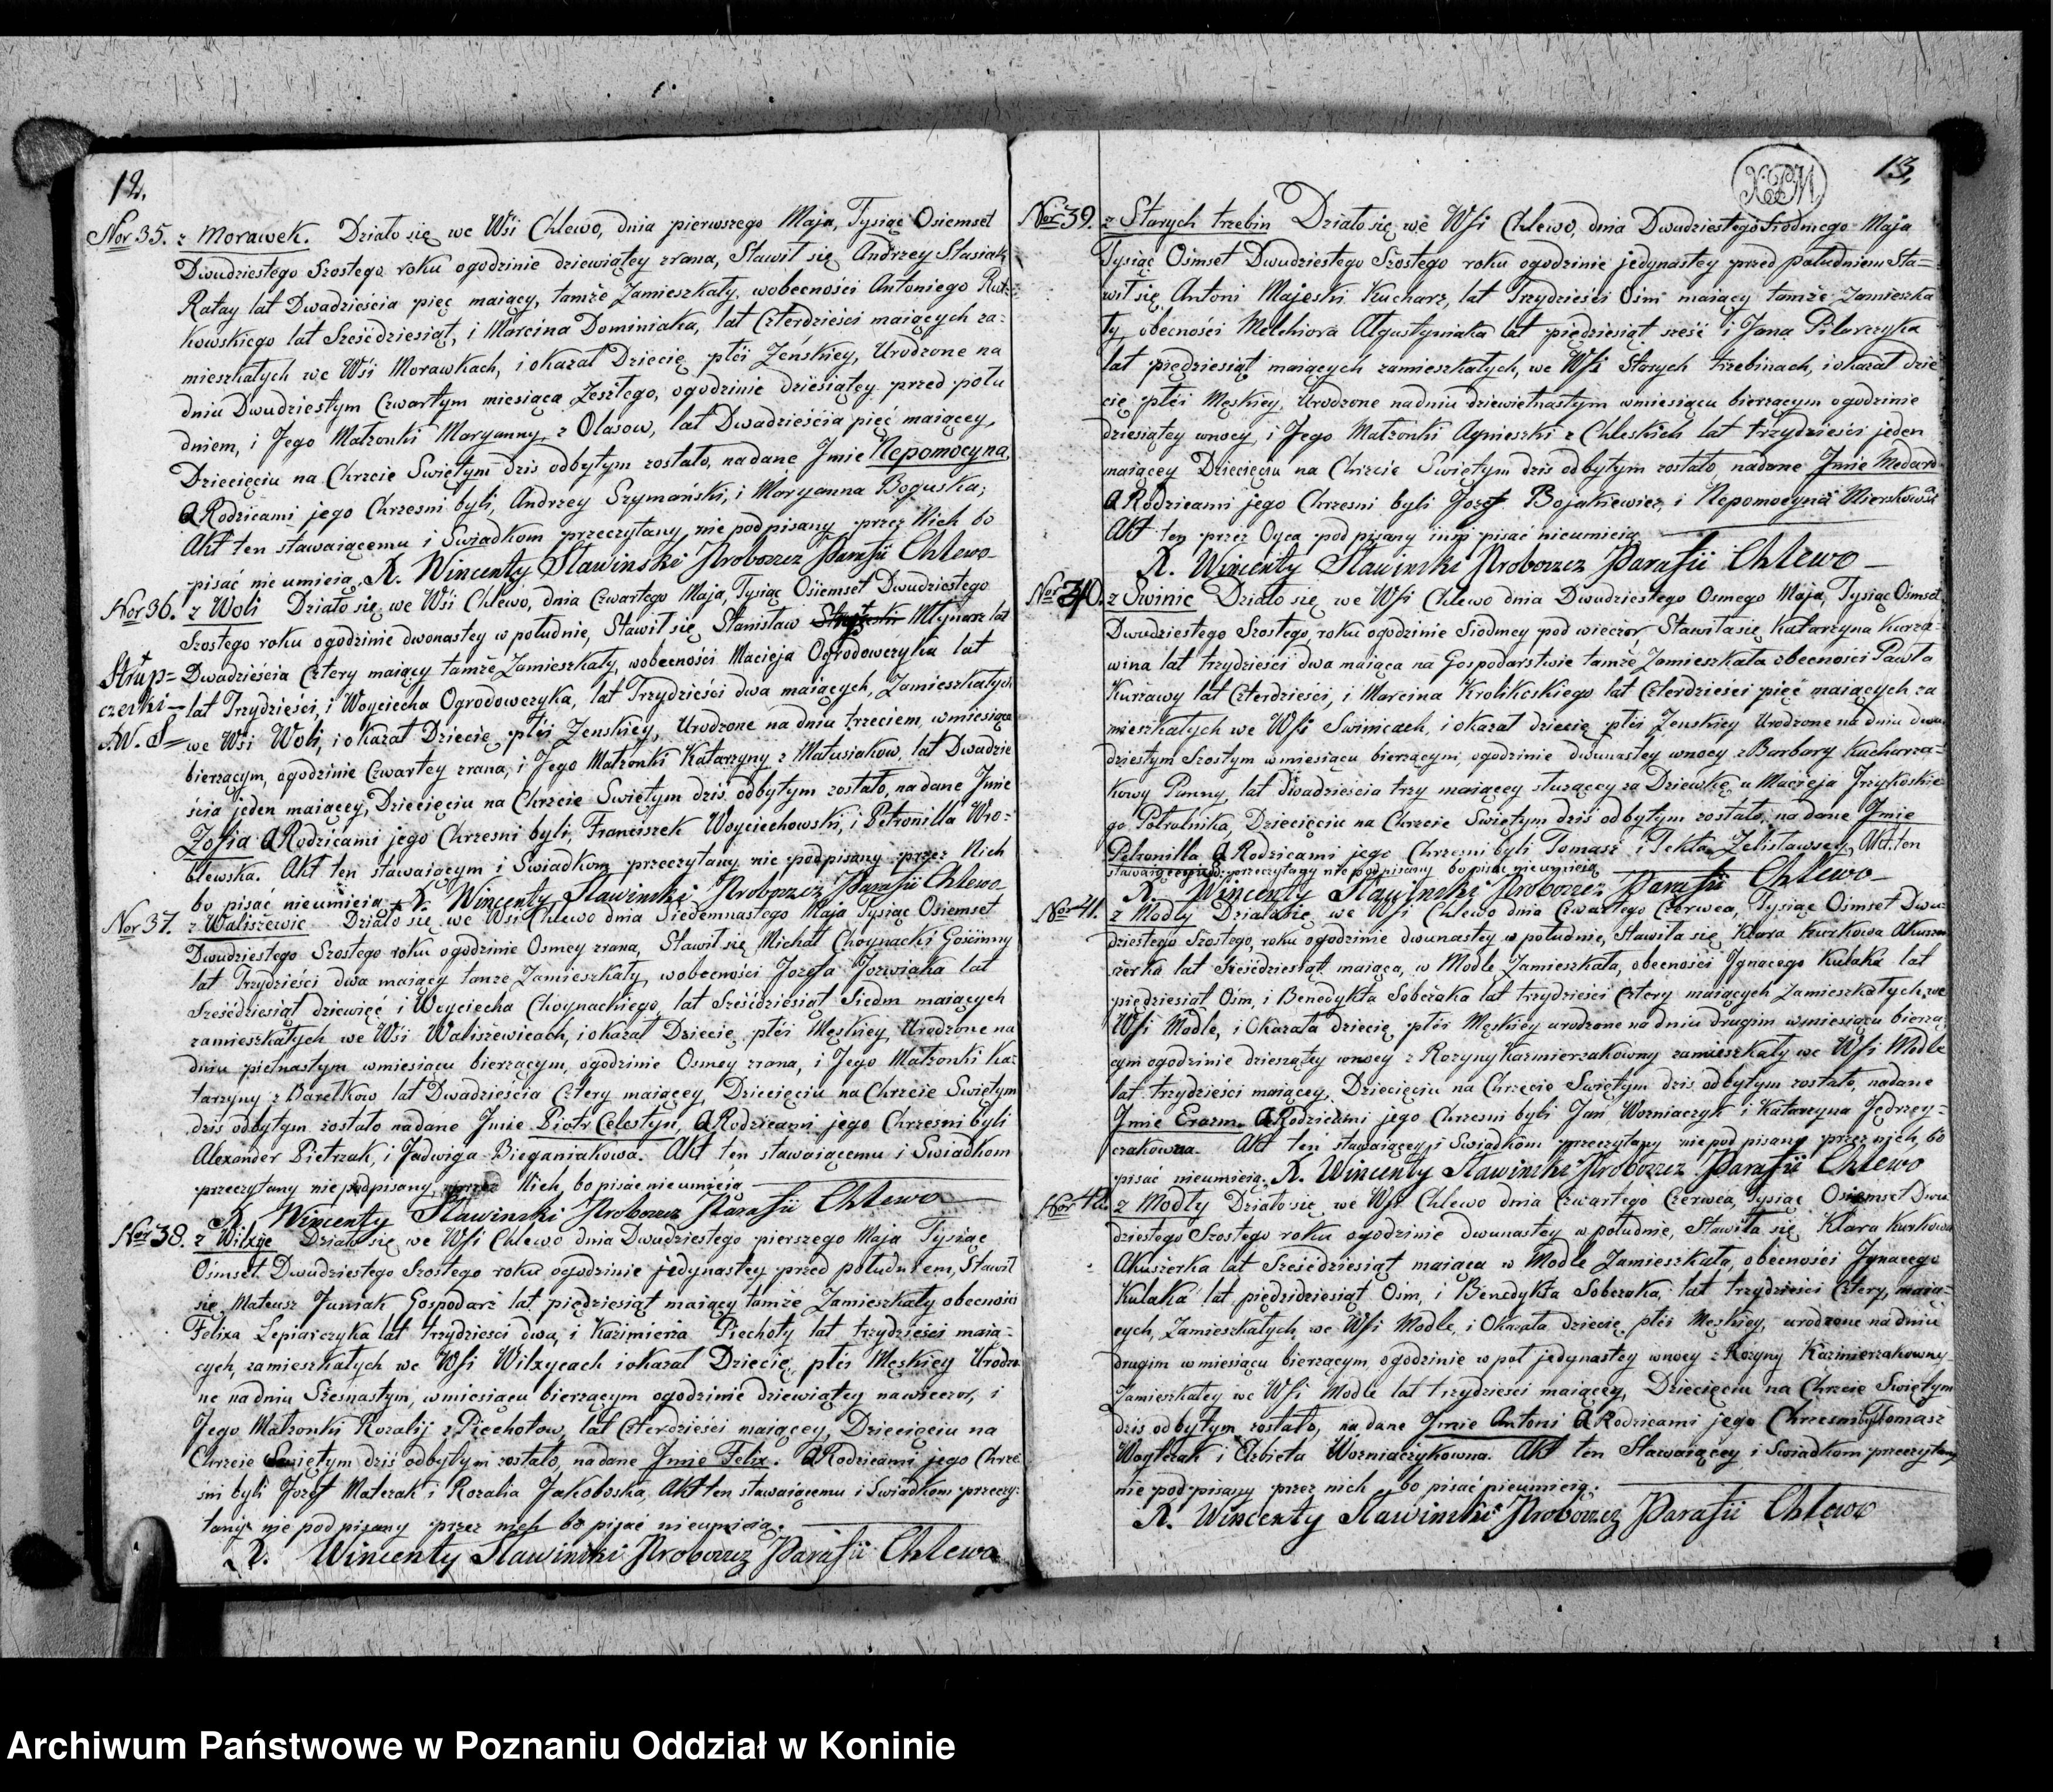 12.
Nor 35. z Morawek. Działo się we Wsi Chlewo, dnia pierwszego Maja, Tysiąc Osiemset
Dwudziestego Szostego roku ogodzinie dziewiątey zrana, Stawił się Andrzey Stasiak
Ratay lat Dwadzieścia pięć maiący, tamże Zamieszkały, wobecności Antoniego Rut=
kowskiego lat Sześćdziesiąt, i Marcina Dominiaka, lat Czterdzieści maiących za=
mieszkałych we Wśi Morawkach, i okazał Dziecię płći Żeńskiey, Urodzone na
dniu Dwudziestym Czwartym miesiąca Zeszłego, ogodzinie dziesiątey przed połu
dniem, i Jego Małzonki Maryanny z Olasow, lat Dwadzieścia pięć maiącey,
Dziecięciu na Chrzcie Swiętym dzis odbytym zostało, nadane Jmie Nepomocyna,
A Rodzicami jego Chrzesni byli, Andrzey Szymański, i Maryanna Boguska;
Akt ten stawaiącemu i Swiadkom przeczytany, nie podpisany przez Nich bo
pisać nie umieią, X. Wincenty Sławinski Proboszcz Parafii Chlewo
Nor 36. z Woli Działo się we Wśi Chlewo, dnia Czwartego Maja, Tysiąc Osiemset Dwudziestego
Szostego roku ogodzinie dwonastey w południe, Stawił się Stanisław Młynarz lat
Słup= Dwadzieścia Cztery maiący tamże Zamieszkały, wobecności Macieja Ogrodowczyka lat
czeński — lat Trzydzieści, i Woyciecha Ogrodowczyka, lat Trzydzieści dwa maiących, Zamieszkałych
X.W.S= we Wsi Woli, i okazał Dziecię płći Zenskiey, Urodzone na dniu trzeciem, wmiesiącu
bierzącym, ogodzinie Czwartey zrana, i Jego Małzonki Katarzyny z Matusiakow, lat Dwadzie
ścia jeden maiącey, Dziecięciu na Chrzcie Swiętym dzis odbytym zostało, nadane Jmie
Zofia A Rodzicami jego Chrzesni byli, Franciszek Woyciechowski, i Petronilla Wro=
blewska. Akt ten stawaiącym i Swiadkom przeczytany nie podpisany przez Nich
bo pisać nieumieią X. Wincenty Sławinski Proboszcz Parafii Chlewo
Nor 37. z Waliszewic Działo się we Wsi Chlewo dnia Siedemnastego Maja Tysiąc Osiemset
Dwudziestego Szostego roku ogodzinie Osmey zrana, Stawił się Michał Choynacki Gościnny
lat Trzydzieści dwa maiący tamze Zamieszkały, wobecności Jozefa Jozwiaka lat
Sześćdziesiąt dziewięć i Woyciecha Choynackiego, lat Sześćdziesiąt Siedm maiących
zamieszkałych we Wśi Waliszewicach, i okazał Dziecię płći Męskiey, Urodzone na
dniu pietnastym wmiesiącu bierzącym, ogodzinie Osmey zrana, i Jego Małzonki Ka=
tarzyny z Barełkow lat Dwadzieścia Cztery maiącey, Dziecięciu na Chrzcie Swiętym
dzis odbytym zostało nadane Jmie Piotr Celestyn, A Rodzicami jego Chrzesni byli
Alexander Pietrzak, i Jadwiga Bieganiakowa. Akt ten stawaiącemu i Swiadkom
przeczytany nie podpisany, przez Nich, bo pisać nieumieią
X. Wincenty Sławinski Proboszcz Parafii Chlewo
Nor 38. z Wilxyc Działo się we Wsi Chlewo dnia Dwudziestego pierszego Maja Tysiąc
Ośmset Dwudziestego Szostego roku ogodzinie jedynastey przed południem, Stawił
się Mateusz Juniak Gospodarz lat pięćdziesiąt maiący tamże Zamieszkały obecnosci
Felixa Lepiarczyka lat trzydziesci dwa, i Kazimierza Piechoty lat trzydzieści maią=
cych, zamieszkałych we Wśi Wilxycach i okazał Dziecię, płći Męskiey Urodzo
ne na dniu Szesnastym, wmiesiącu bierzącym ogodzinie dziewiątey nawieczor, i
Jego Małzonki Rozalij z Piechotow, lat Czterdzieści maiącey, Dziecięciu na
Chrzcie Swiętym dziś odbytym zostało, nadane Jmie Felix. A Rodzicami jego Chrze
sni byli Jozef Matczak i Rozalia Jakoboska, Akt ten stawaiącemu i Swiadkom przeczy=
tany nie podpisany przez nich bo pisać nieumieią.
X. Wincenty Sławinski Proboszcz Parafii Chlewo
13.
Nor 39. z Starych trzebin Działo się we Wśi Chlewo, dnia Dwudziestego Siodmego Maja
Tysiąc Ośmset Dwudziestego Szostego roku ogodzinie jedynastey przed południem Sta=
wił się Antoni Majeski Kucharz, lat Trzydzieści Ośm maiący tamże Zamieszka
ły, obecnosci Melchiora Algustyniaka lat pięćdziesiąt sześć i Jana Pilarczyka
lat pięćdziesiąt maiących zamieszkałych, we Wśi Starych trzebinach, i okazał dzie
cię płći Męskiey, Urodzone nadniu dziewietnastym wmiesiącu bierzącym ogodzinie
dziesiątey wnocy, i Jego Małzonki Agnieszki z Chleskich lat trzydzieści jeden
maiącey Dziecięciu na Chrzcie Swiętym dzis odbytym zostało nadane Jmie Medard
A Rodzicami jego Chrzesni byli Jozef Bojakiewicz, i Nepomocyna Mierskowa
Akt ten przez Oyca podpisany insi pisać nieumieią
X. Wincenty Sławinski Proboszcz Parafii Chlewo —
Nor 40. z Swinic Działo się we Wśi Chlewo dnia Dwudziestego Osmego Maja, Tysiąc Ośmset
Dwudziestego Szostego, roku ogodzinie Siodmey pod wieczor Stawiła się Katarzyna Kurza=
wina lat trzydzieści dwa maiąca na Gospodarstwie tamże Zamieszkała obecności Pawła
Kurzawy lat Czterdzieści, i Marcina Krolikoskiego lat Czterdzieści pięć maiących za
mieszkałych we Wśi Swinicach, i okazał dziecię płći Zenskiey Urodzone na dniu dwu
dziestym Szostym wmiesiącu bierzącym ogodzinie dwunastey wnocy z Barbary Kucharza=
kowy Panny, lat dwadzieścia trzy maiącey słuzącey za Dziewkę u Macieja Jrzykoskie
go Połrolnika, Dziecięciu na Chrzcie Swiętym dziś odbytym zostało, nadane Jmie
Petronilla A Rodzicami jego Chrzesni byli Tomasz i Tekla Zelisławscy, Akt ten
stawaiącey przeczytany nie podpisany bo pisać nieumieią
X. Wincenty Sławinski Proboszcz Parafii Chlewo —
Nor 41. z Modły Działo się we Wśi Chlewo dnia Czwartego Czerwca, Tysiąc Ośmset Dwu
dziestego Szostego, roku ogodzinie dwunastey w południe, Stawiła się Klara Kurkowa Akuszer
zerka lat Sześćdziesiąt maiąca, w Modle Zamieszkała, obecności Jgnacego Kulaka lat
pięćdziesiąt Ośm, i Benedykta Sobczaka lat trzydzieści Cztery maiących Zamieszkałych, we
Wśi Modle, i Okazała dziecię płći Męskiey urodzone na dniu drugim wmiesiącu bierzą
cym ogodzinie dziesiątey wnocy z Rozyny Kazmierzakowny zamieszkały we Wśi Modle
lat trzydzieści maiącey, Dziecięciu na Chrzcie Swiętym dzis odbytym zostało, nadane
Jmie Erazm. A Rodzicami jego Chrzesni byli Jan Wozniaczyk i Katarzyna Jędrzey=
czakowna. Akt ten stawaiącey i Swiadkom przeczytany nie podpisany przez nich, bo
pisać nieumieią. X. Wincenty Sławinski Proboszcz Parafii Chlewo
Nor 42. z Modły Działo się we Wśi Chlewo dnia Czwartego Czerwca, Tysiąc Osiemset Dwu
dziestego Szostego roku ogodzinie dwunastey w południe, Stawiła się Klara Kurkowa
Akuszerka lat Sześćdziesiąt maiąca w Modle Zamieszkała, obecności Jgnacego
Kulaka lat pięćdziesiąt Ośm, i Benedykta Sobczaka, lat trzydzieści Cztery, maią=
cych, Zamieszkałych, we Wśi Modle, i Okazała dziecię płći Męskiey, urodzone na dniu
drugim w miesiącu bierzącym, ogodzinie w poł jedynastey wnocy z Rozyny Kazimierzakowny
Zamieszkałey we Wśi Modle lat trzydzieści maiącey, Dziecięciu na Chrzcie Swiętym
dzis odbytym zostało, nadane Jmie Antoni A Rodzicami jego Chrzesni byli Tomasz
Woytczak i Elzbieta Wozniaczykowna. Akt ten Stawaiącey i Swiadkom przeczytany
nie podpisany przez nich bo pisać nieumieią.
X. Wincenty Sławinski Proboszcz Parafii Chlewo
Archiwum Państwowe w Poznaniu Oddział w Koninie